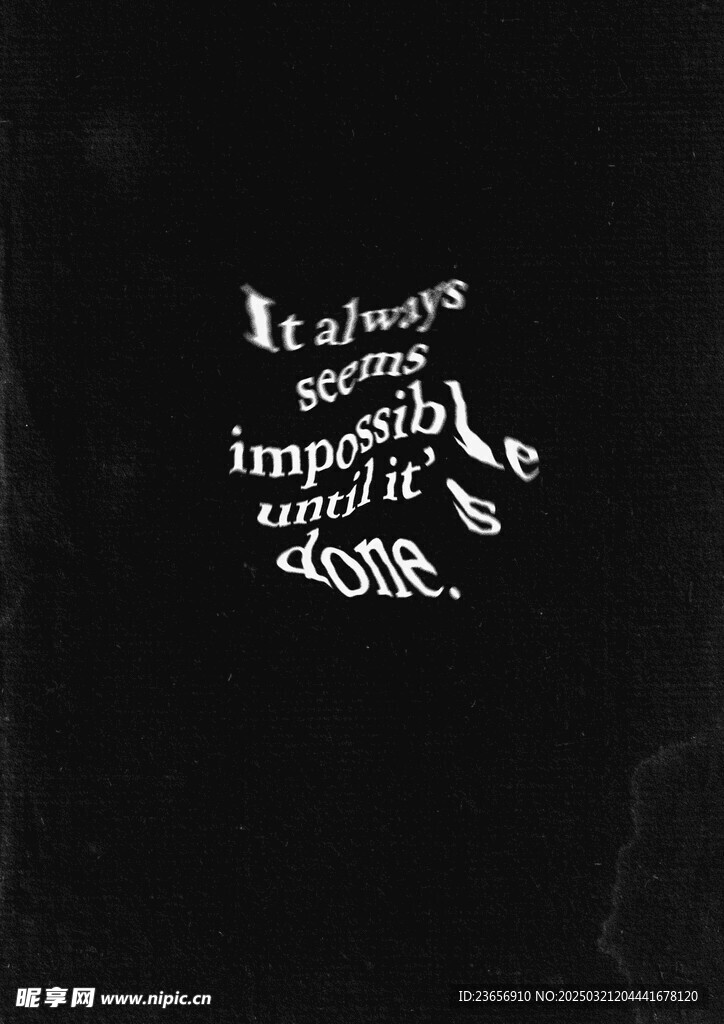 It always
seems
impossible
until it's
done.
昵享网 www.nipic.cn
ID:23656910 NO:20250321204441678120